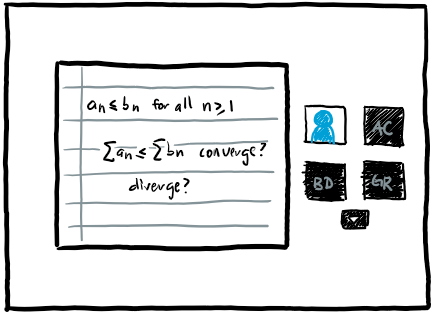 an ≤ bn for all n ≥ 1
∑an ≤ ∑bn converge?
diverge?
AC
BD
GR